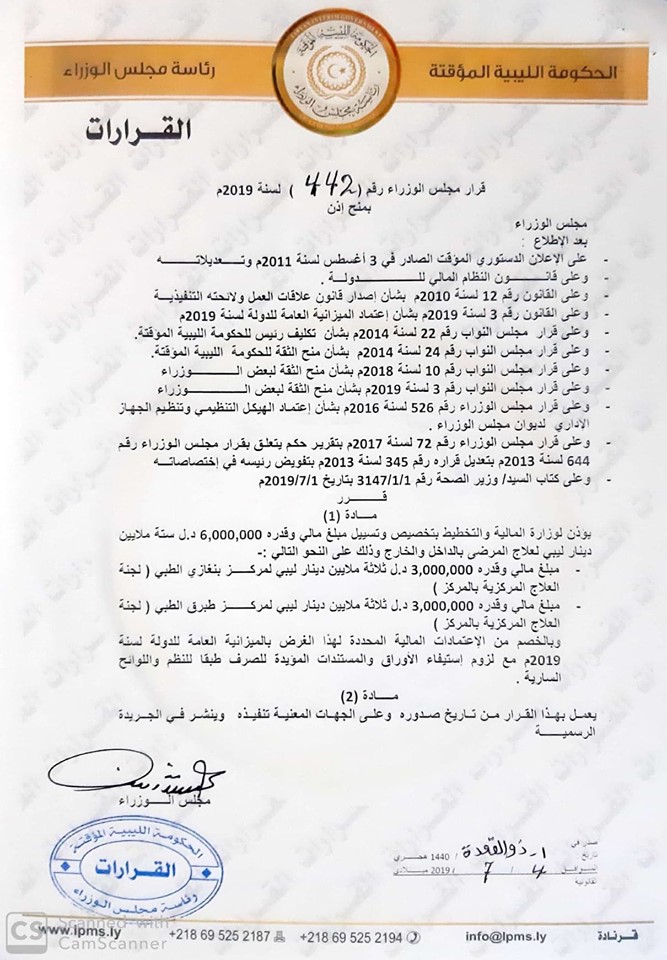 الحكومة الليبية المؤقتة
رئاسة مجلس الوزراء
القـــرارات
قرار مجلس الوزراء رقم (442) لسنة 2019م
بمنح إذن
مجلس الوزراء
بعد الإطلاع :
- على الإعلان الدستوري المؤقت الصادر في 3 أغسطس لسنة 2011م وتــعديلاتـــــه
- وعلى قانـــون النظام المالي للـــــــدولـــة .
- وعلى القانون رقم 12 لسنة 2010م بشأن إصدار قانون علاقات العمل ولائحته التنفيذية
- وعلى القانون رقم 3 لسنة 2019م بشأن إعتماد الميزانية العامة للدولة لسنة 2019م
- وعلى قرار مجلس النواب رقم 22 لسنة 2014م بشأن تكليف رئيس للحكومة الليبية المؤقتة.
- وعلى قرار مجلس النواب رقم 24 لسنة 2014م بشأن منح الثقة للحكومة الليبية المؤقتة.
- وعلى قرار مجلس النواب رقم 10 لسنة 2018م بشأن منح الثقة لبعض الـــــــوزراء
- وعلى قرار مجلس النواب رقم 3 لسنة 2019م بشأن منح الثقة لبعض الـــــــوزراء
- وعلى قرار مجلس الوزراء رقم 526 لسنة 2016م بشأن إعتماد الهيكل التنظيمي وتنظيم الجهاز
الاداري لديوان مجلس الوزراء .
- وعلى قرار مجلس الوزراء رقم 72 لسنة 2017م بتقرير حكم يتعلق بقرار مجلس الوزراء رقم
644 لسنة 2013م بتعديل قراره رقم 345 لسنة 2013م بتفويض رئيسه في إختصاصاتـــه
- وعلى كتاب السيد/ وزير الصحة رقم 3147/1/1 بتاريخ 2019/7/1م
قـــــرر
مـــادة (1)
يؤذن لوزارة المالية والتخطيط بتخصيص وتسييل مبلغ مالي وقدره 6,000,000 د.ل ستة ملايين
دينار ليبي لعلاج المرضى بالداخل والخارج وذلك على النحو التالي :-
- مبلغ مالي وقدره 3,000,000 د.ل ثلاثة ملايين دينار ليبي لمركـــز بنغازي الطبي ( لجنة
العلاج المركزية بالمركز )
- مبلغ مالي وقدره 3,000,000 د.ل ثلاثة ملايين دينار ليبي لمركـــز طبرق الطبي ( لجنة
العلاج المركزية بالمركز )
وبالخصم من الإعتمادات المالية المحددة لهذا الغرض بالميزانية العامة للدولة لسنة
2019م مع لزوم إستيفاء الأوراق والمستندات المؤيدة للصرف طبقا للنظم واللوائح
السارية .
مـــادة (2)
يعمل بهذا القرار من تاريخ صدوره وعلى الجهات المعنية تنفيذه وينشر في الجريدة
الرسميـــة
مجلس الـــوزراء
الحكومة الليبية المؤقتة
القـــرارات
رئاسة مجلس الوزراء
صدر في
بتاريخ 1- ذو القعدة / 1440 هجري
الموافق 4 / 7 / 2019 ميلادي
CS Scanned with
CamScanner
www.lpms.ly
+218 69 525 2187
+218 69 525 2194
info@lpms.ly
قــرنـادة